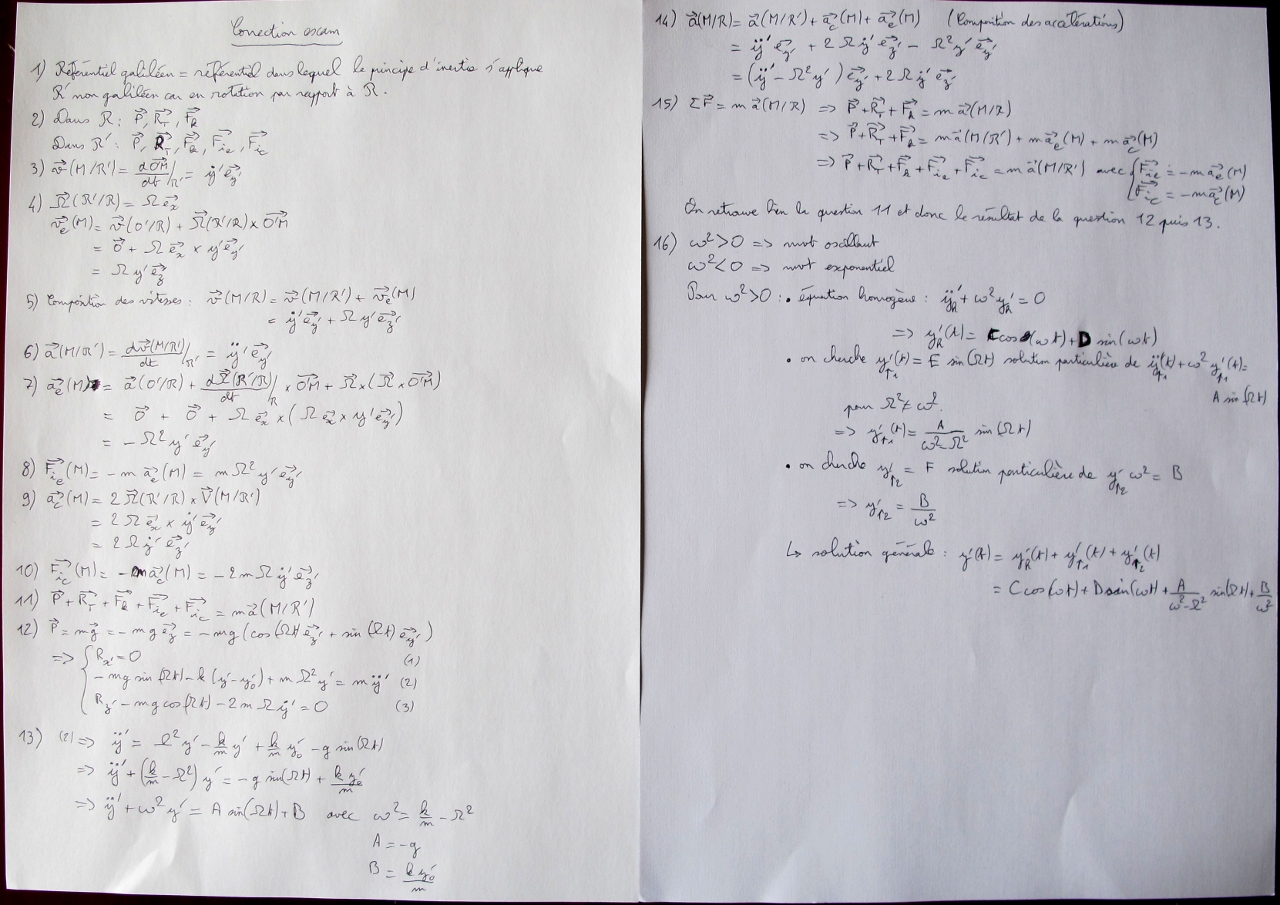 Correction exam
1) Référentiel galiléen = référentiel dans lequel le principe d'inertie s'applique
R' non galiléen car en rotation par rapport à R.
2) Dans R : P⃗, R⃗_T, F⃗_R
Dans R' : P⃗, R⃗_T, F⃗_R, F⃗_ie, F⃗_ic
3) v⃗(M/R') = dO⃗M/dt /R' = ẏ' e⃗y'
4) Ω⃗(R'/R) = Ω e⃗x
v⃗e(M) = v⃗(O'/R) + Ω⃗(R'/R) × O'M⃗
= 0⃗ + Ω e⃗x × y' e⃗y'
= Ω y' e⃗z'
5) Composition des vitesses : v⃗(M/R) = v⃗(M/R') + v⃗e(M)
= ẏ' e⃗y' + Ω y' e⃗z'
6) a⃗(M/R') = dv⃗(M/R')/dt /R' = ÿ' e⃗y'
7) a⃗e(M) = a⃗(O'/R) + dΩ⃗(R'/R)/dt /R × O'M⃗ + Ω⃗ × (Ω⃗ × O'M⃗)
= 0⃗ + 0⃗ + Ω e⃗x × (Ω e⃗x × y' e⃗y')
= - Ω² y' e⃗y'
8) F⃗ie(M) = - m a⃗e(M) = m Ω² y' e⃗y'
9) a⃗c(M) = 2 Ω⃗(R'/R) × V⃗(M/R')
= 2 Ω e⃗x × ẏ' e⃗y'
= 2 Ω ẏ' e⃗z'
10) F⃗ic(M) = - m a⃗c(M) = - 2 m Ω ẏ' e⃗z'
11) P⃗ + R⃗_T + F⃗_R + F⃗ie + F⃗ic = m a⃗(M/R')
12) P⃗ = m g⃗ = - m g e⃗z = - mg (cos(Ωt) e⃗z' + sin(Ωt) e⃗y')
=> { Rx' = 0 (1)
- mg sin(Ωt) - k (y' - y'0) + m Ω² y' = m ÿ' (2)
Rz' - mg cos(Ωt) - 2 m Ω ẏ' = 0 (3)
13) (2) => ÿ' = Ω² y' - k/m y' + k/m y'0 - g sin(Ωt)
=> ÿ' + (k/m - Ω²) y' = - g sin(Ωt) + k y'0/m
=> ÿ' + ω² y' = A sin(Ωt) + B avec ω² = k/m - Ω²
A = - g
B = k y'0/m
14) a⃗(M/R) = a⃗(M/R') + a⃗c(M) + a⃗e(M) (Composition des accélérations)
= ÿ' e⃗y' + 2 Ω ẏ' e⃗z' - Ω² y' e⃗y'
= (ÿ' - Ω² y') e⃗y' + 2 Ω ẏ' e⃗z'
15) ΣF⃗ = m a⃗(M/R) => P⃗ + R⃗_T + F⃗_R = m a⃗(M/R)
=> P⃗ + R⃗_T + F⃗_R = m a⃗(M/R') + m a⃗e(M) + m a⃗c(M)
=> P⃗ + R⃗_T + F⃗_R + F⃗ie + F⃗ic = m a⃗(M/R') avec { F⃗ie = - m a⃗e(M)
F⃗ic = - m a⃗c(M)
On retrouve bien la question 11 et donc le résultat de la question 12 puis 13.
16) ω² > 0 => mvt oscillant
ω² < 0 => mvt exponentiel
Pour ω² > 0 : • équation homogène : ÿ'R + ω² y'R = 0
=> y'R(t) = C cos(ωt) + D sin(ωt)
• on cherche y'p1(t) = E sin(Ωt) solution particulière de ÿ'p1(t) + ω² y'p1(t) =
A sin(Ωt)
pour Ω² ≠ ω².
=> y'p1(t) = A/(ω² - Ω²) sin(Ωt)
• on cherche y'p2 = F solution particulière de y'p2 ω² = B
=> y'p2 = B/ω²
↳ solution générale : y'(t) = y'R(t) + y'p1(t) + y'p2(t)
= C cos(ωt) + D sin(ωt) + A/(ω² - Ω²) sin(Ωt) + B/ω²